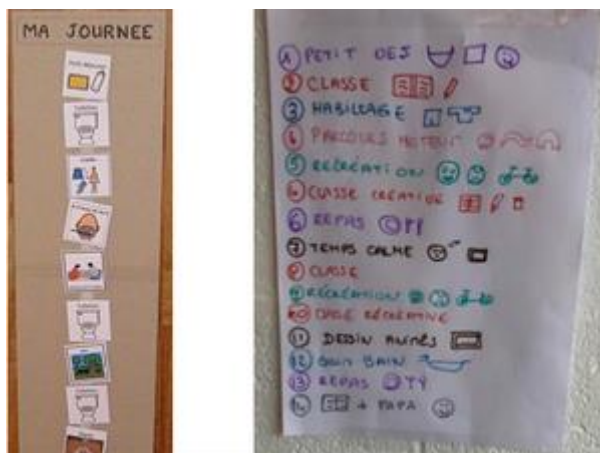 MA JOURNEE
1 PETIT DEJ
2 CLASSE
3 HABILLAGE
4 PARCOURS MOTEUR
5 RECRÉATION
6 CLASSE CRÉATIVE
6 REPAS
7 TEMPS CALME
8 CLASSE
9 RÉCRÉATION
10 CLASSE RÉCRÉATIVE
11 DESSIN ANIMÉS
12 BAIN
13 REPAS
14 + PAPA